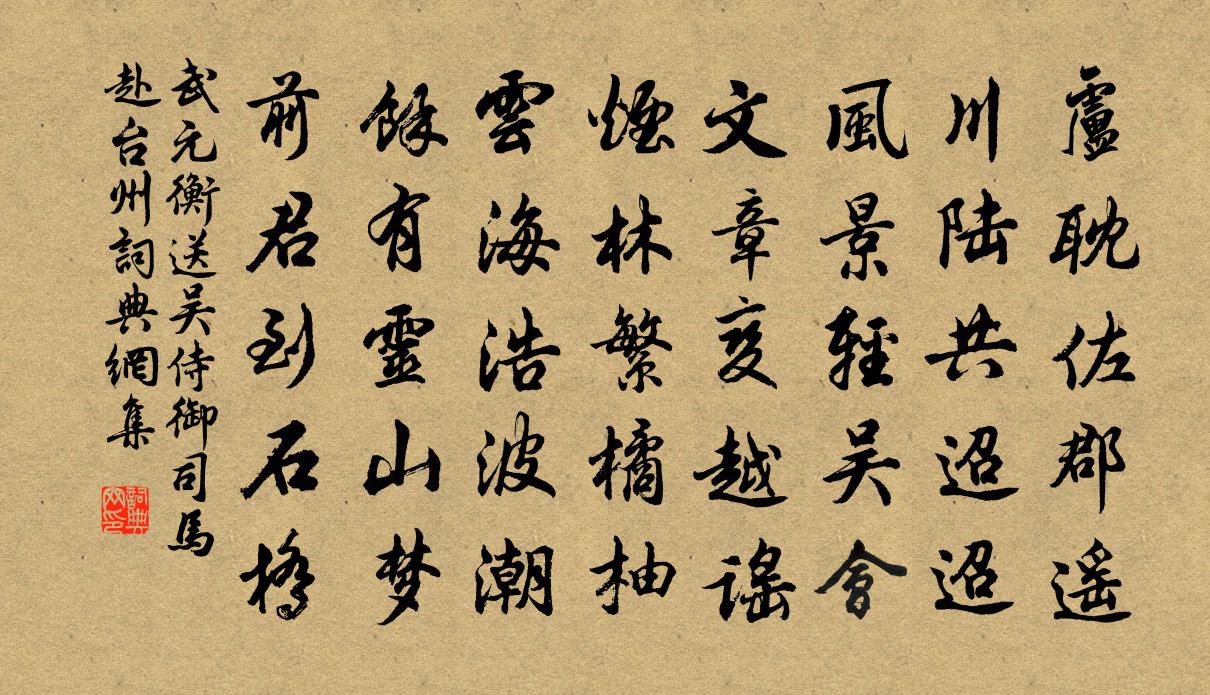 盧耽佐郡遥
川陆共迢迢
風景輕吴會
文章变越謡
煙林繁橘柚
雲海浩波潮
餘有靈山梦
前君到石橋
武元衡送吴侍御司馬
赴台州詞典網集
詞典网印